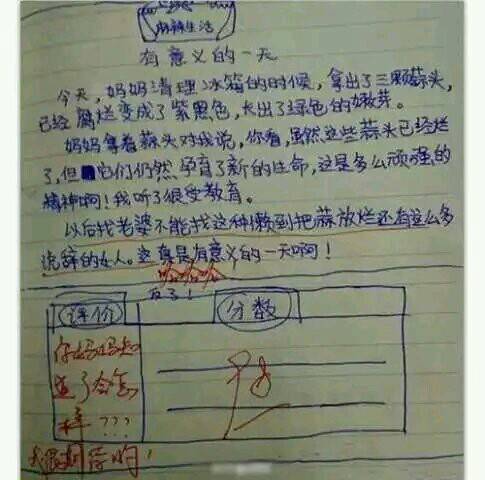 麻辣生活
有意义的一天
今天，妈妈清理冰箱的时候，拿出了三颗蒜头，
已经腐烂变成了紫黑色，长出了绿色的嫩芽。
妈妈拿着蒜头对我说，你看，虽然这些蒜头已经烂
了，但它们仍然孕育了新的生命，这是多么顽强的
精神啊！我听了很受教育。
以后找老婆不能找这种懒到把蒜放烂还有这么多
说辞的女人。这真是有意义的一天啊！
哈哈哈
反了！
评价
分数
你妈妈知
道了会怎
样???
我很期待哟!